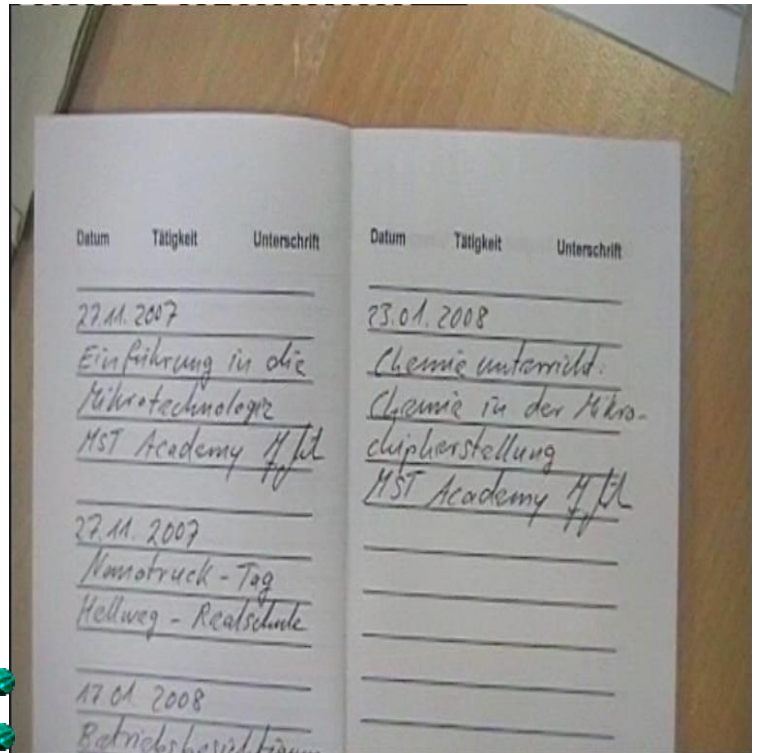 Datum Tätigkeit Unterschrift
27.11.2007
Einführung in die
Mikrotechnologie
MST Academy
27.11.2007
Nanotruck - Tag
Hellweg - Realschule
17.01.2008
Betriebsbesichtigung
Datum Tätigkeit Unterschrift
23.01.2008
Chemieunterricht:
Chemie in der Mikro-
chipherstellung
MST Academy